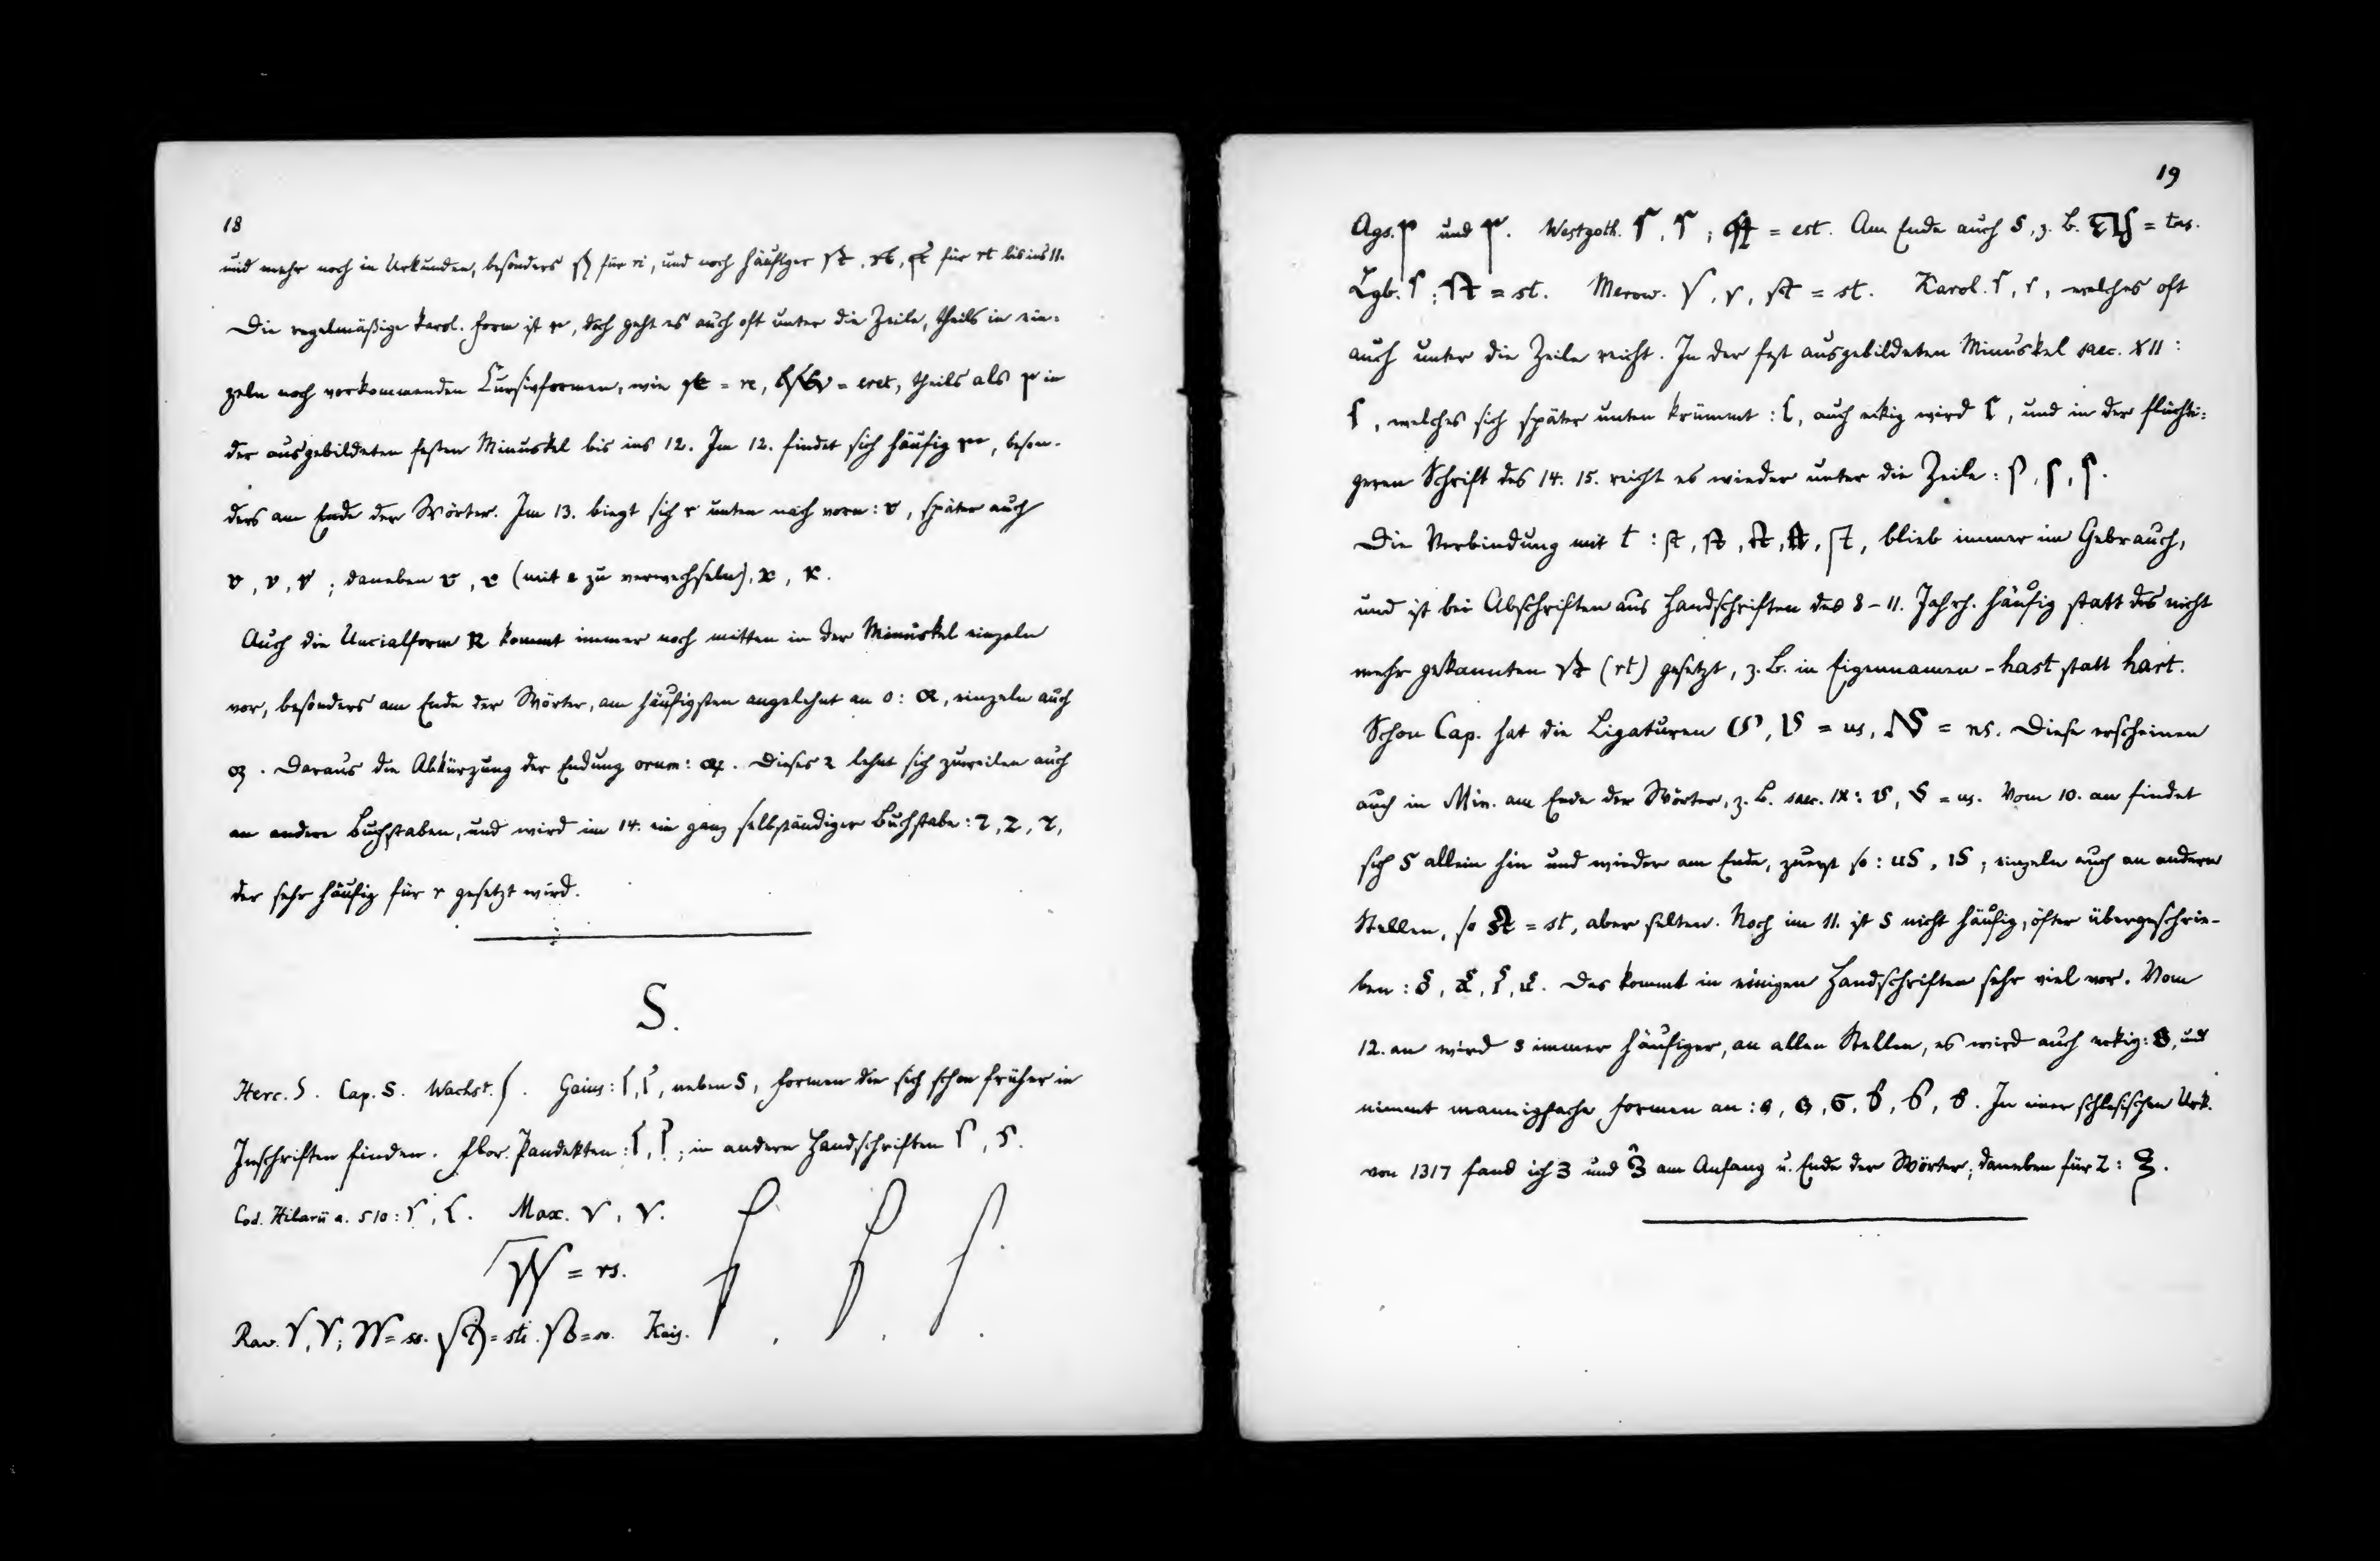 18
und mehr noch in Urkunden, besonders für ri, und noch häufiger für rt bis ins 11.
Die regelmäßige karol. Form ist r, doch geht es auch oft unter die Zeile, theils in ein-
zeln noch vorkommenden Cursivformen, wie = re, = eret, theils als r in
der ausgebildeten festen Minuskel bis ins 12. Im 12. findet sich häufig r, beson-
ders am Ende der Wörter. Im 13. biegt sich r unten nach vorn: , später auch
; daneben (mit e zu verwechseln), .
Auch die Uncialform R kommt immer noch mitten in der Minuskel einzeln
vor, besonders am Ende der Wörter, am häufigsten angelehnt an o: , einzeln auch
. Daraus die Abkürzung der Endung orum: . Dieses 2 lehnt sich zuweilen auch
an andere Buchstaben, und wird im 14. ein ganz selbständiger Buchstabe: 2, 2, 2,
der sehr häufig für r gesetzt wird.
S.
Herc. S. Cap. S. Wachst. ſ. Gaius: ſ, ſ, neben S, Formen die sich schon früher in
Inschriften finden. Flor. Pandekten: ſ, ſ; in andern Handschriften ſ, s.
Cod. Hilarii a. 510: ſ, ſ. Max. , .
= rs.
Rav. , ; = ss. = sti. = so. Kais.
19
Ags. und . Westgoth. ſ, ſ; = est. Am Ende auch S, z. B. = tas.
Lgb. ſ; = st. Merow. , , = st. Karol. ſ, ſ, welches oft
auch unter die Zeile reicht. In der fest ausgebildeten Minuskel saec. XII:
ſ, welches sich später unten krümmt: ſ, auch eckig wird ſ, und in der flüchti-
geren Schrift des 14. 15. reicht es wieder unter die Zeile: ſ, ſ, ſ.
Die Verbindung mit t: , blieb immer im Gebrauch,
und ist bei Abschriften aus Handschriften des 8–11. Jahrh. häufig statt des nicht
mehr gekannten (rt) gesetzt, z. B. in Eigennamen -hast statt hart.
Schon Cap. hat die Ligaturen , = us, = ns. Diese erscheinen
auch in Min. am Ende der Wörter, z. B. saec. IX: , = us. Vom 10. an findet
sich S allein hin und wieder am Ende, zuerst so: uS, ıS; einzeln auch an andern
Stellen, so = st, aber selten. Noch im 11. ist S nicht häufig, öfter übergeschrie-
ben: . Das kommt in einigen Handschriften sehr viel vor. Vom
12. an wird s immer häufiger, an allen Stellen, es wird auch eckig: , und
nimmt mannigfache Formen an: . In einer schlesischen Urk.
von 1317 fand ich 3 und am Anfang u. Ende der Wörter; daneben für Z: .